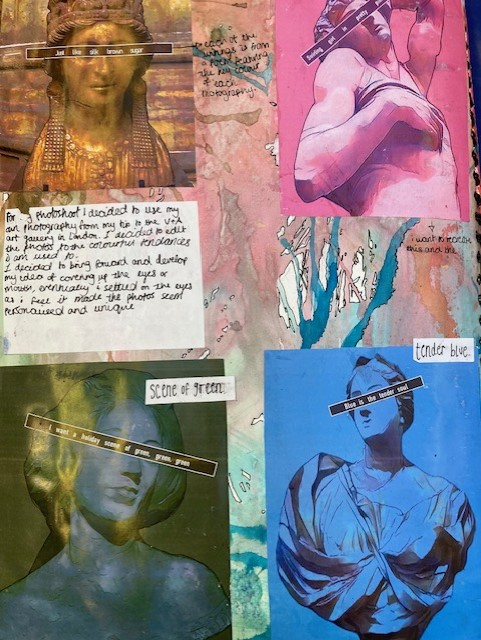 Just like silk brown sugar
each of the
is from
a poem featuring
the key colour
of each
photography.
Sunday girl in pretty
For photoshoot I decided to use my
own photography from my trip to the V+A
art gallery in London. I decided to edit
the photos to the colourful tendancies
i am used to.
I decided to bring foward and develop
my idea of covering up the eyes or
mouth, eventually i settled on the eyes
as i feel it made the photos seem
personalised and unique
i want to recreate
this and the
tender blue.
scene of green.
I want a holiday scene of green, green, green
Blue is the tender soul